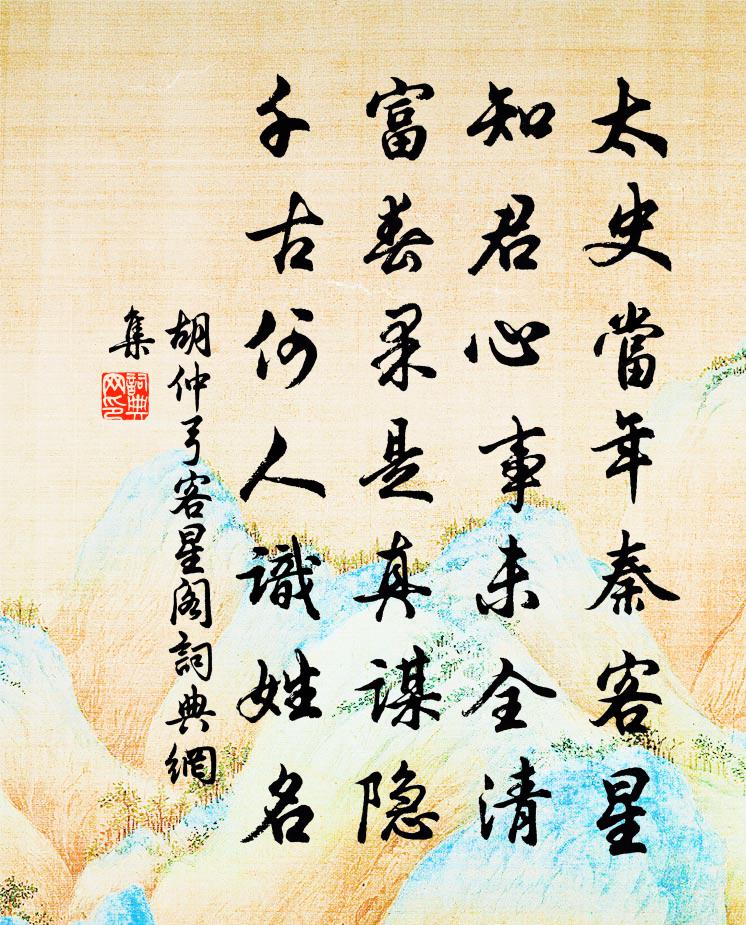 太史當年秦客星
知君心事未全清
富春果是真謀隐
千古何人識姓名
胡仲弓客星阁詞典網
集
詞典
网印